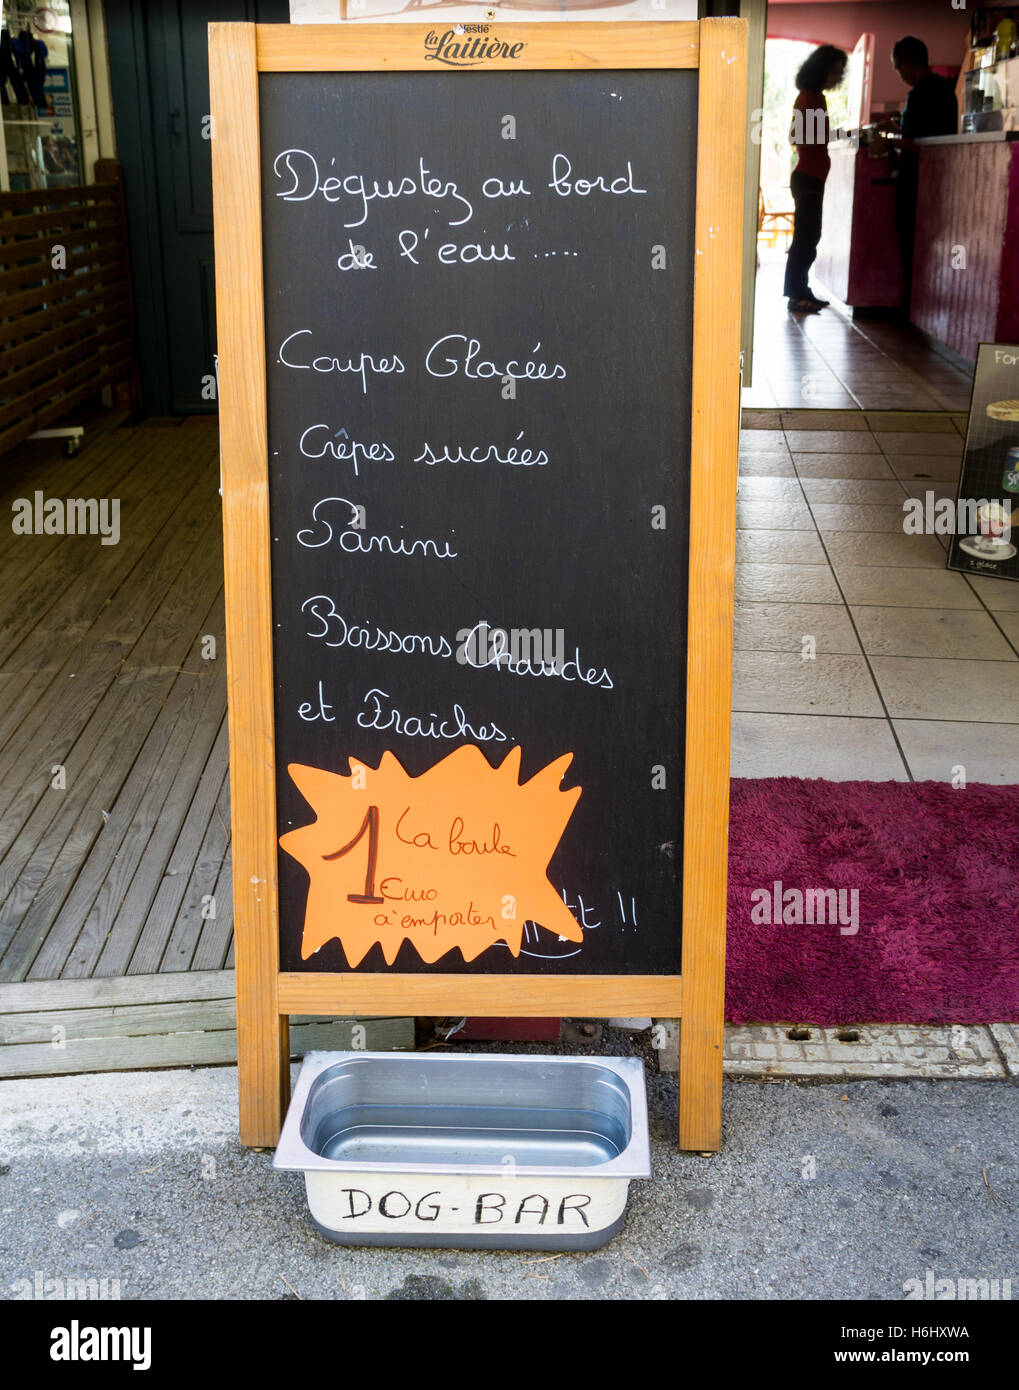 Nestlé
la Laitière
Dégustez au bord
de l'eau .....
. Coupes Glacées
. Crêpes sucrées
. Panini
. Boissons Chaudes
et Fraîches.
La boule
1 Euro
à emporter.
!!
DOG-BAR
1 glace
alamy
Image ID: H6HXWA
www.alamy.com